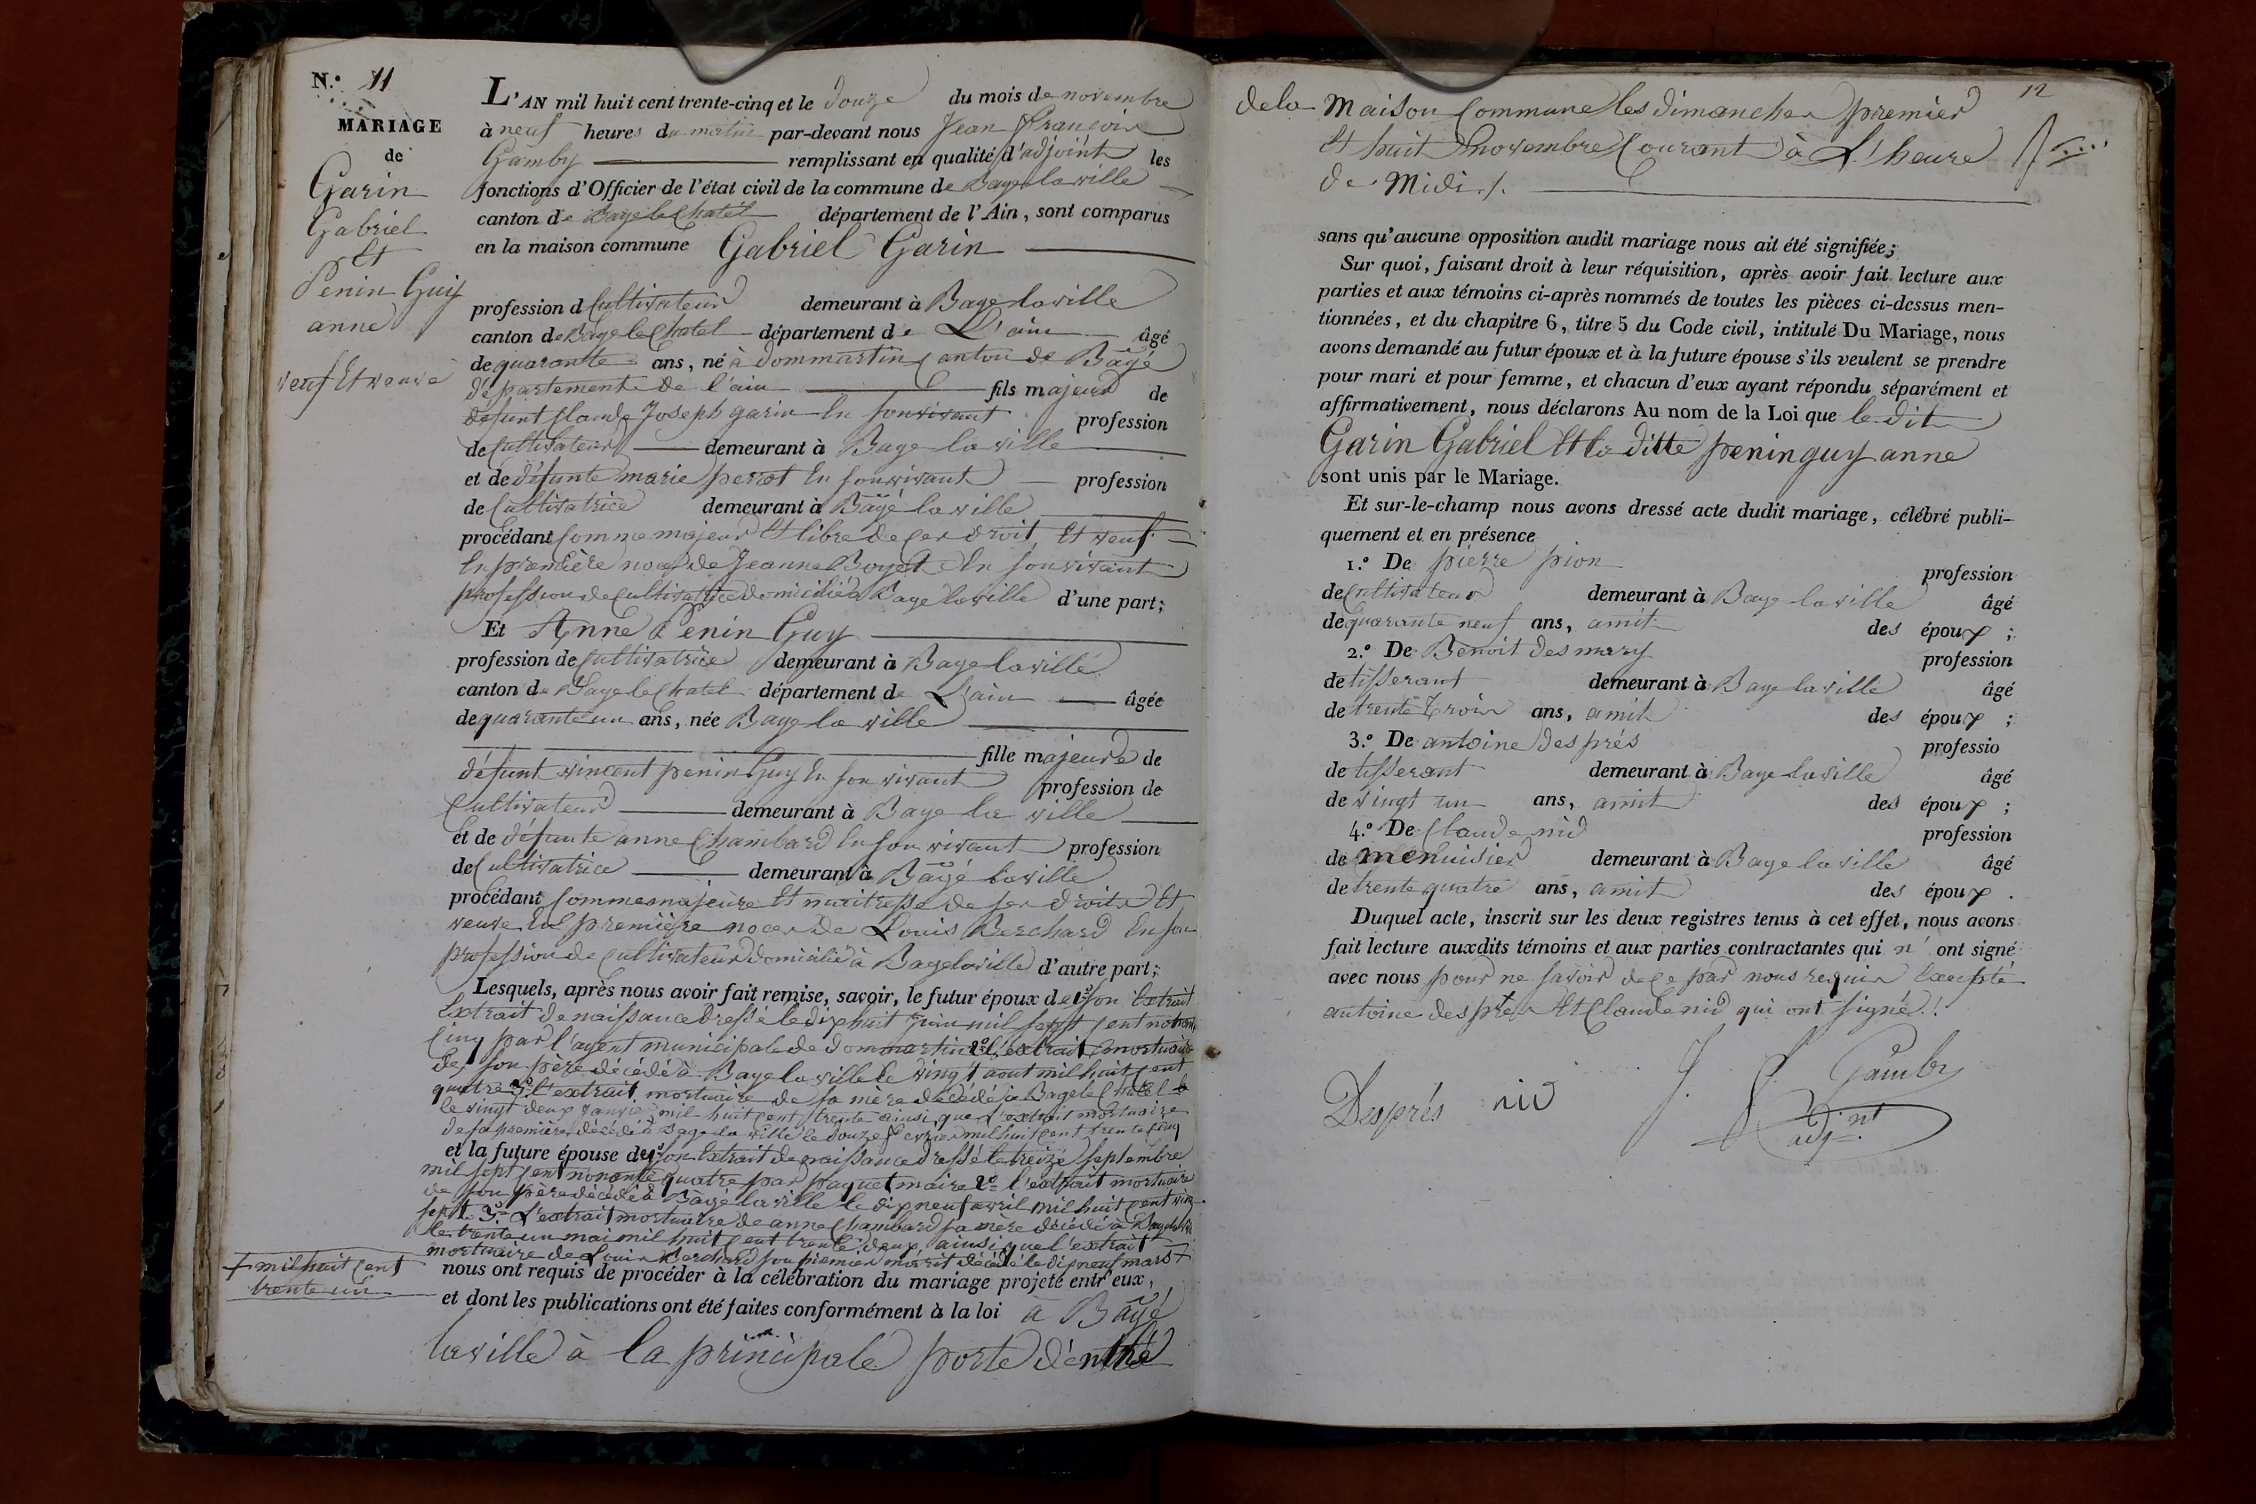 N.º 11
MARIAGE
de
Garin
Gabriel
Et
Penin Guy
anne
veuf Et veuve
L'AN mil huit cent trente-cinq et le douze du mois de novembre
à neuf heures du matin par-devant nous Jean François
Gamby remplissant en qualité d'adjoint les
fonctions d'Officier de l'état civil de la commune de Bage la ville
canton de Bage le Chatel département de l'Ain, sont comparus
en la maison commune Gabriel Garin
profession d Cultivateur demeurant à Bage la ville
canton de Bage le Chatel département de L'ain âgé
de quarantte ans, né à dommartin Canton de Bagé
département de l'ain fils majeur de
defunt Claude Joseph garin En son vivant profession
de Cultivateur demeurant à Bage la ville
et de défunte marie perrot En son vivant profession
de Cultivatrice demeurant à Bagé la ville
procédant Comme majeur Et libre de ces droit, Et veuf
En première noces de Jeanne Boyet En son vivant
profession de Cultivatrice domicilié à Bage la ville d'une part;
Et Anne Penin Guy
profession de Cultivatrice demeurant à Bage la ville
canton de Bage le Chatel département de L'ain âgée
de quarante un ans, née Bage la ville
fille majeure de
défunt vincent penin Guy En son vivant profession de
Cultivateur demeurant à Bage la ville
et de défunte anne Chambard En son vivant profession
de Cultivatrice demeurant à Bagé la ville
procédant Comme majeure Et maitresse de ses droits Et
veuve En première noces de Louis Berchard En son
profession de Cultivateur domicilié à Bage la ville d'autre part;
Lesquels, après nous avoir fait remise, savoir, le futur époux de 1º son Extrait
Extrait de naissance dressé le dix huit juin mil sept cent nonante
Cinq par l'agent municipale de dommartin 2º l'extrait mortuaire
de son père décédé à Bage la ville le vingt aout mil huit cent
quatre 3º l'extrait mortuaire de sa mère décédé à Bage le Chatel le
le vingt deux janvier mil huit cent trente ainsi que l'extrait mortuaire
de sa première décédé à Bage la ville le douze fevrier mil huit cent trente cinq
et la future épouse de 1º son Extrait de naissance dressé le treize septembre
mil sept cent nonante quatre par paquet maire 2º l'extrait mortuaire
de son père décédé à Bagé la ville le dix neuf avril mil huit cent vingt
sept 3º L'extrait mortuaire de anne Chambard sa mère décédé à Bage la ville
le trente un mai mil huit cent trente deux ainsi que l'extrait
mortuaire de Louis Berchard son premier marit décédé le dix neuf mars +
+ mil huit cent
trente un
nous ont requis de procéder à la célébration du mariage projeté entr'eux,
et dont les publications ont été faites conformément à la loi à Bagé
la ville à la principale porte d'entré
12
de la Maison Commune les dimanches premier
Et huit novembre Courant à L'heure
de Midi ./.
sans qu'aucune opposition audit mariage nous ait été signifiée;
Sur quoi, faisant droit à leur réquisition, après avoir fait lecture aux
parties et aux témoins ci-après nommés de toutes les pièces ci-dessus men-
tionnées, et du chapitre 6, titre 5 du Code civil, intitulé Du Mariage, nous
avons demandé au futur époux et à la future épouse s'ils veulent se prendre
pour mari et pour femme, et chacun d'eux ayant répondu séparément et
affirmativement, nous déclarons Au nom de la Loi que le dit
Garin Gabriel Et la ditte penin guy anne
sont unis par le Mariage.
Et sur-le-champ nous avons dressé acte dudit mariage, célébré publi-
quement et en présence
1.º De pierre pion profession
de Cultivateur demeurant à Bage la ville âgé
de quarante neuf ans, amit des époux ;
2.º De Benoit desmary profession
de tisserant demeurant à Bage la ville âgé
de trente trois ans, amit des époux ;
3.º De antoine des prés professio
de tisserant demeurant à Bage la ville âgé
de vingt un ans, amit des époux ;
4.º De Claude nid profession
de menuisier demeurant à Bage la ville âgé
de trente quatre ans, amit des époux .
Duquel acte, inscrit sur les deux registres tenus à cet effet, nous avons
fait lecture auxdits témoins et aux parties contractantes qui n' ont signé
avec nous pour ne savoir de Ce par nous requis Excepté
antoine després Et Claude nid qui ont signé !
Després nid J. f. Gamby
adj.nt